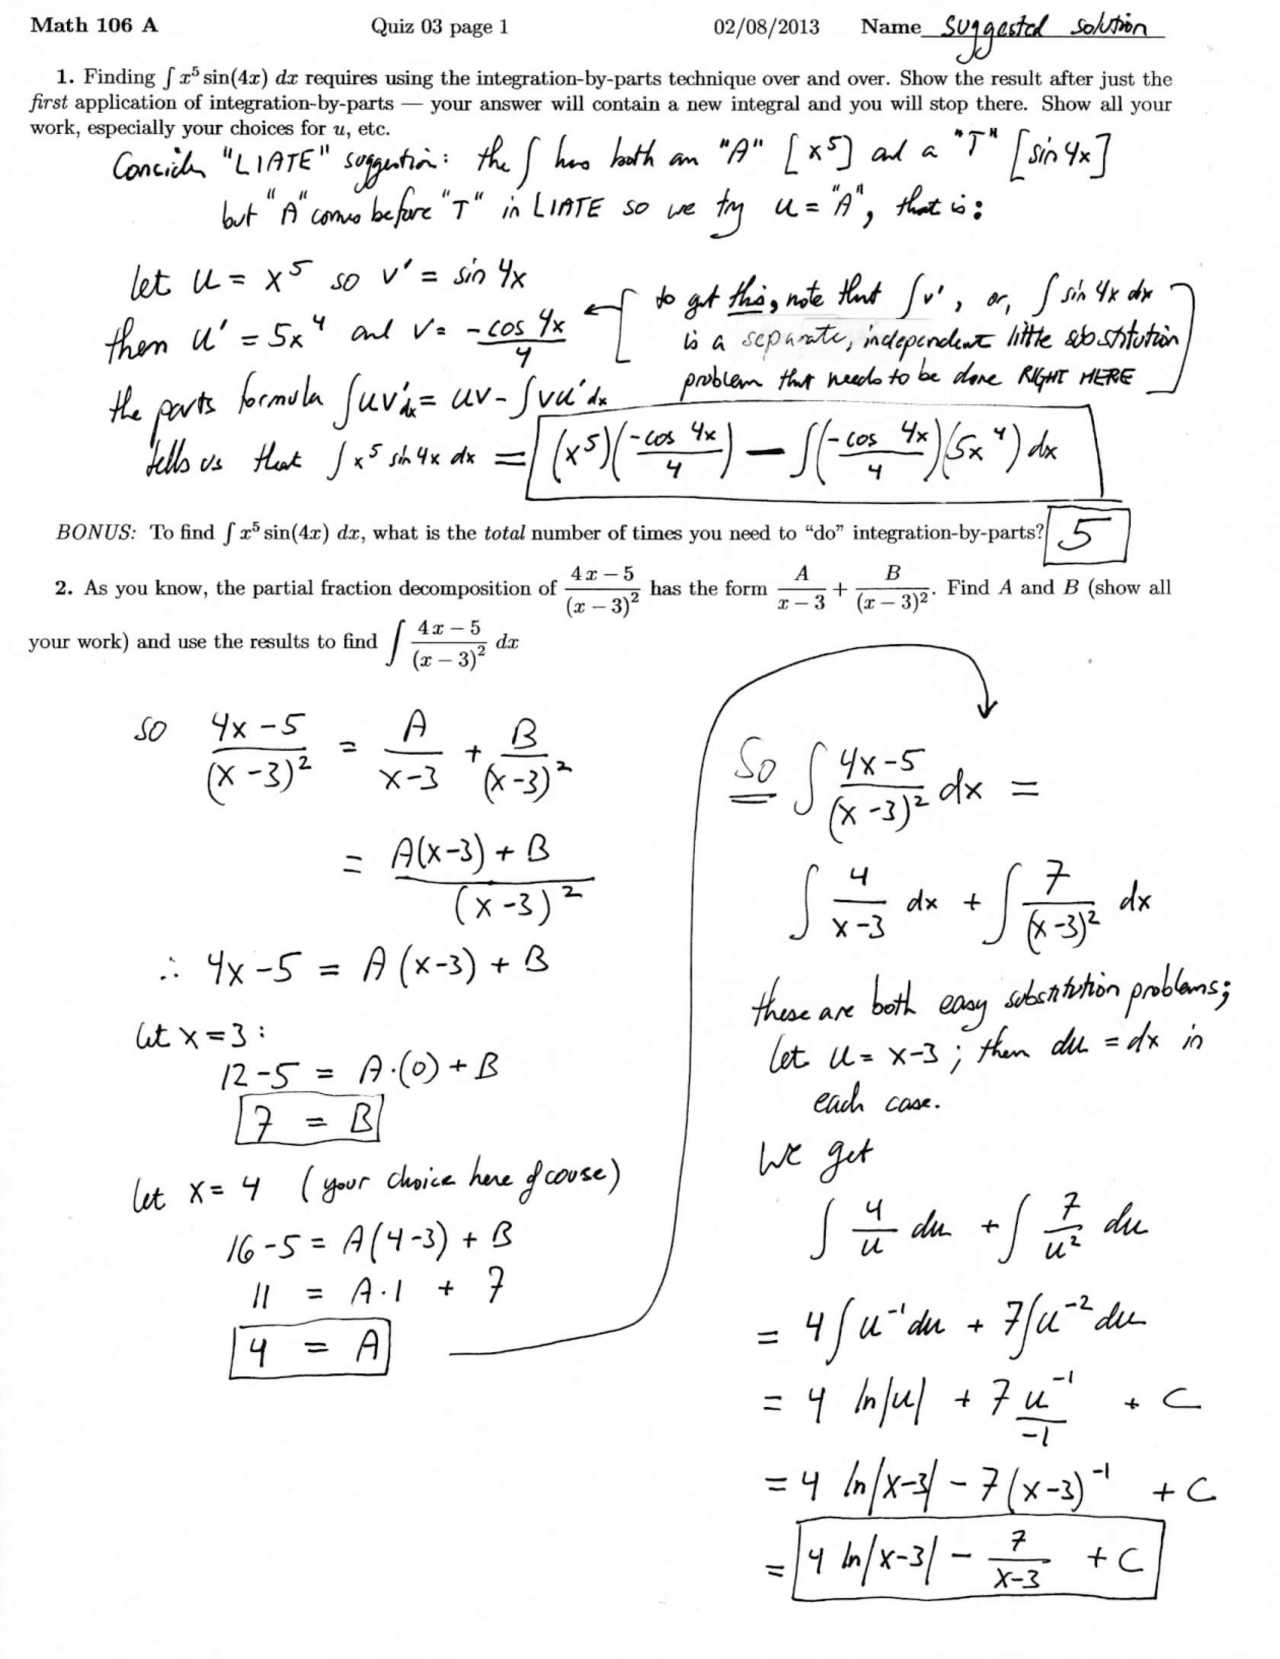 Math 106 A Quiz 03 page 1 02/08/2013 Name suggested solution
1. Finding ∫ x⁵ sin(4x) dx requires using the integration-by-parts technique over and over. Show the result after just the
first application of integration-by-parts — your answer will contain a new integral and you will stop there. Show all your
work, especially your choices for u, etc.
Consider "LIATE" suggestion: the ∫ has both an "A" [x⁵] and a "T" [sin 4x]
but "A" comes before "T" in LIATE so we try u = "A", that is:
let u = x⁵ so v' = sin 4x
then u' = 5x⁴ and v = -cos 4x / 4
to get this, note that ∫v', or, ∫ sin 4x dx
is a separate, independent little substitution
problem that needs to be done RIGHT HERE
the parts formula ∫uv'dx = uv - ∫vu'dx
tells us that ∫ x⁵ sin 4x dx = (x⁵)(-cos 4x / 4) - ∫(-cos 4x / 4)(5x⁴) dx
BONUS: To find ∫ x⁵ sin(4x) dx, what is the total number of times you need to "do" integration-by-parts? 5
2. As you know, the partial fraction decomposition of (4x − 5)/(x − 3)² has the form A/(x − 3) + B/(x − 3)². Find A and B (show all
your work) and use the results to find ∫ (4x − 5)/(x − 3)² dx
so (4x-5)/(x-3)² = A/(x-3) + B/(x-3)²
= (A(x-3) + B)/(x-3)²
∴ 4x-5 = A(x-3) + B
let x=3:
12-5 = A·(0) + B
7 = B
let x=4 (your choice here of couse)
16-5 = A(4-3) + B
11 = A·1 + 7
4 = A
So ∫ (4x-5)/(x-3)² dx =
∫ 4/(x-3) dx + ∫ 7/(x-3)² dx
these are both easy substitution problems;
let u = x-3; then du = dx in
each case.
We get
∫ 4/u du + ∫ 7/u² du
= 4∫u⁻¹du + 7∫u⁻²du
= 4 ln|u| + 7 u⁻¹/-1 + C
= 4 ln|x-3| - 7(x-3)⁻¹ + C
= 4 ln|x-3| - 7/(x-3) + C